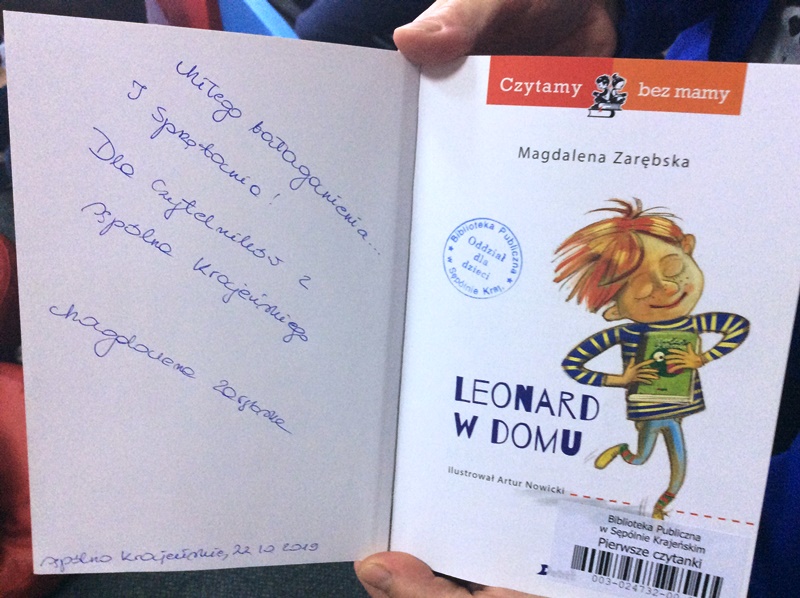 Miłego bałaganienia...
I sprzątania!
Dla Czytelników z
Sępólna Krajeńskiego
Magdalena Zarębska
Sępólno Krajeńskie, 22.10.2019
Czytamy bez mamy
Magdalena Zarębska
Biblioteka Publiczna
Oddział
dla
dzieci
w Sępólnie Kraj.
LEONARD
W DOMU
Ilustrował Artur Nowicki
Biblioteka Publiczna
w Sępólnie Krajeńskim
Pierwsze czytanki
003-024732-00